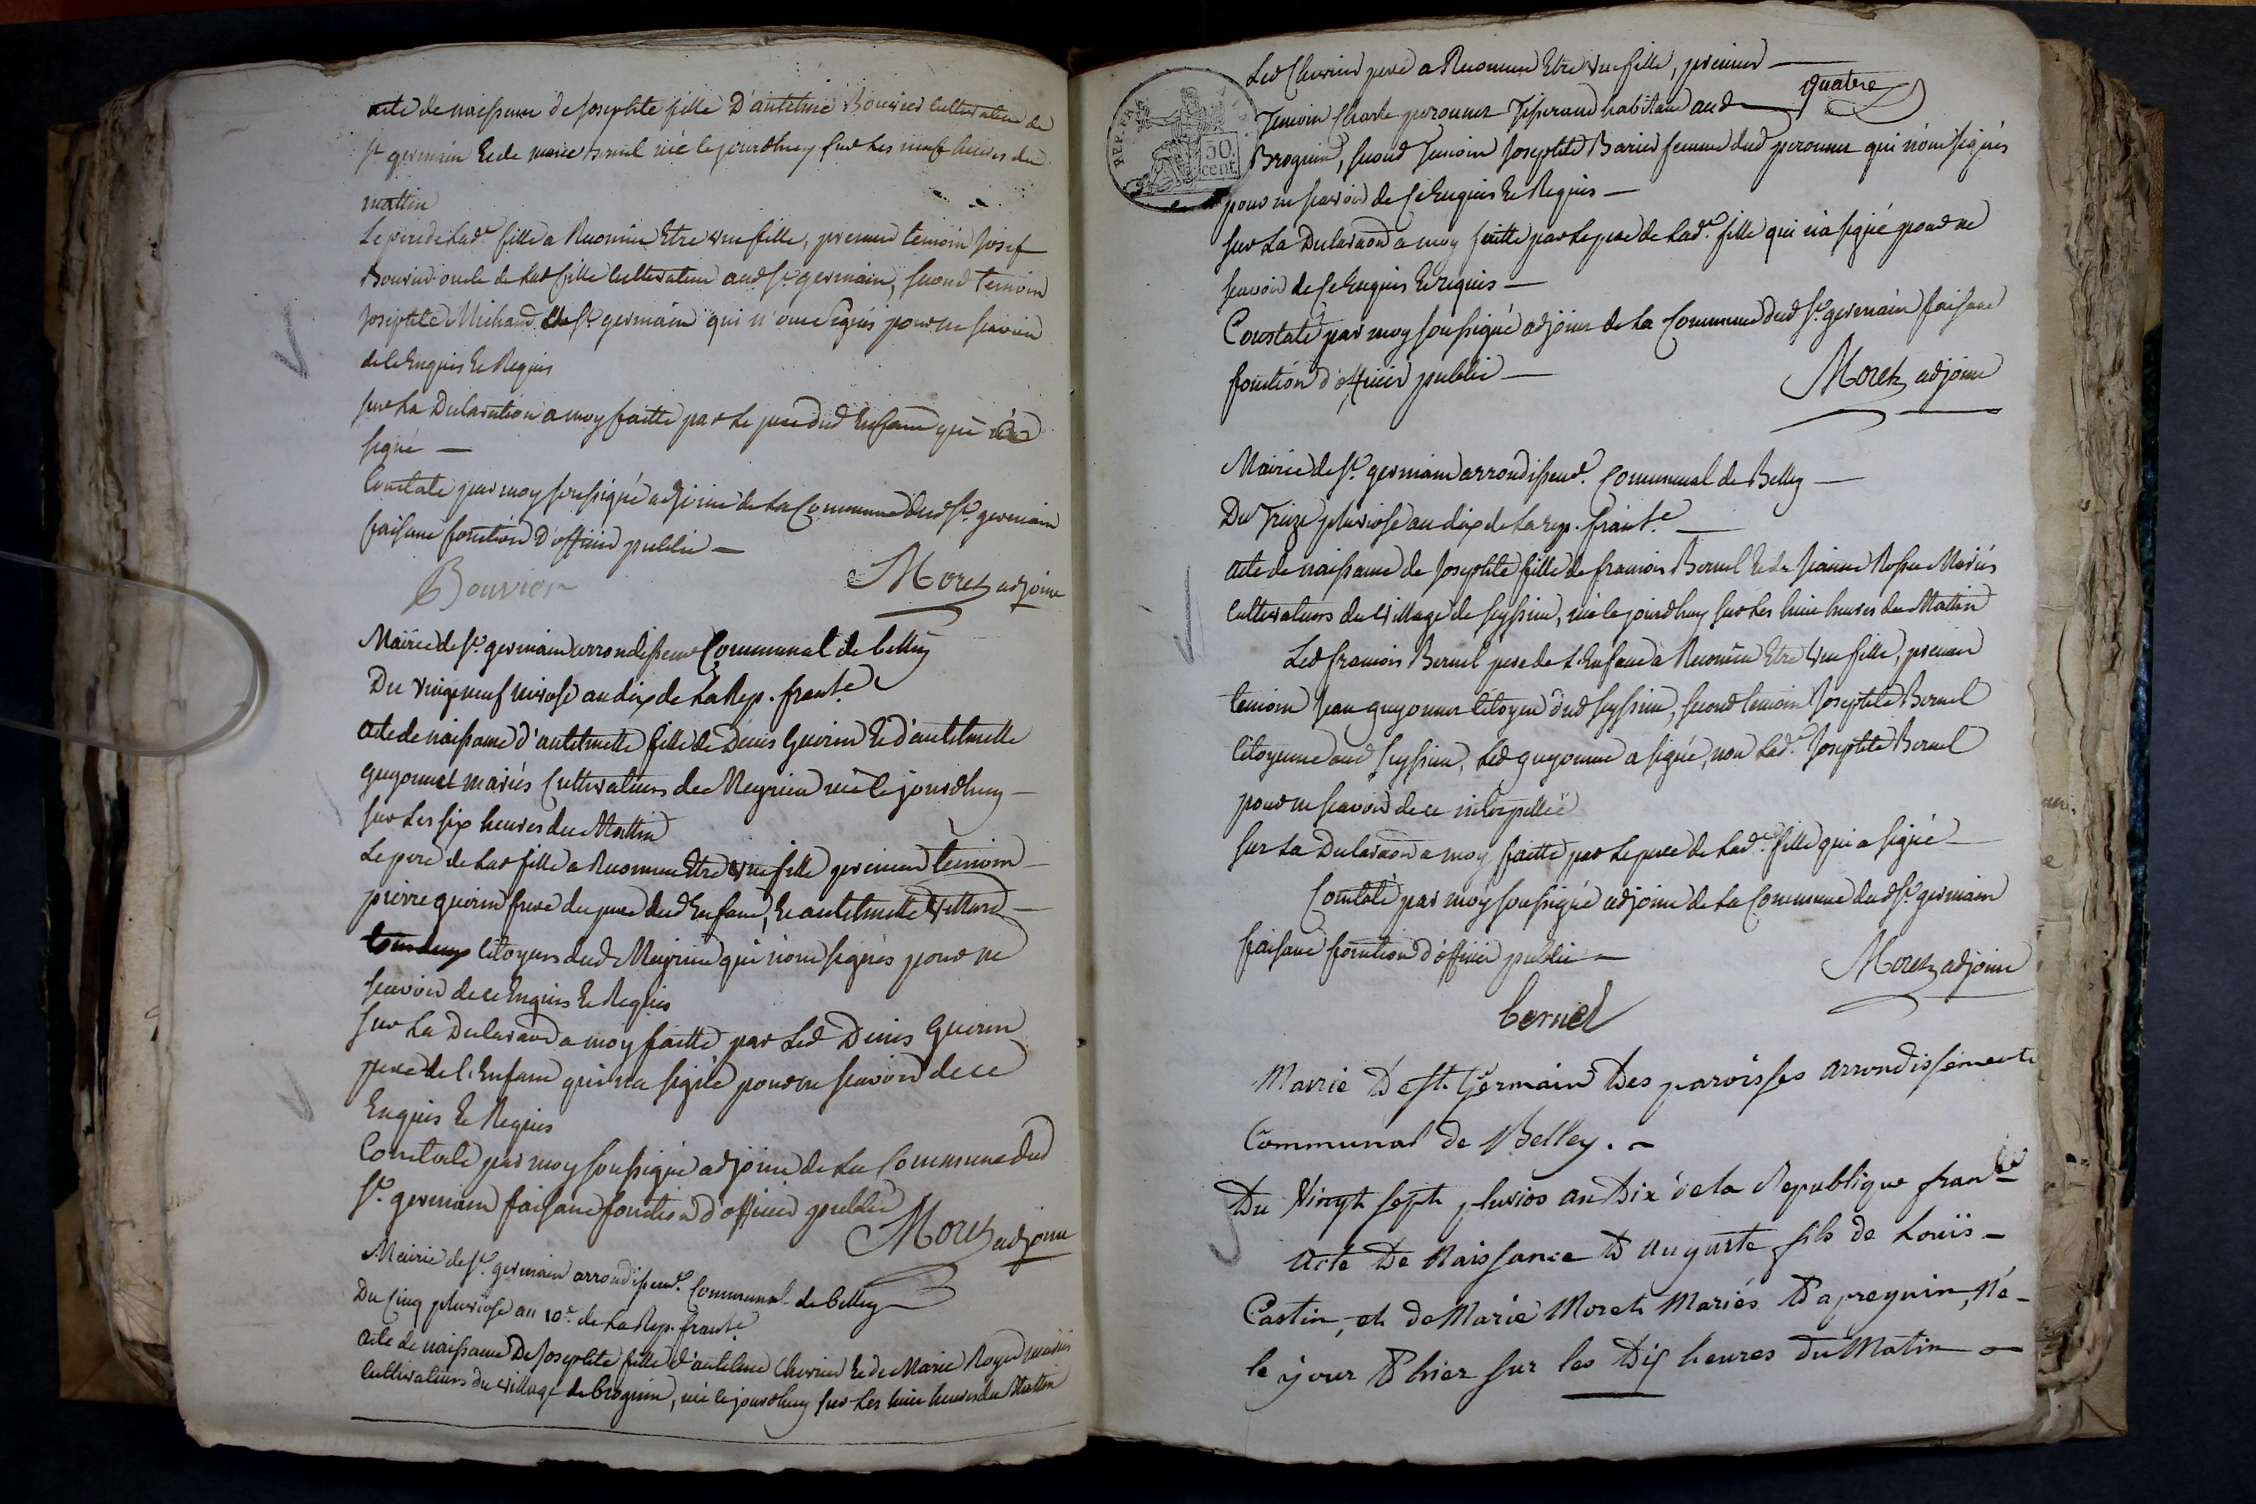 acte de naissance de Josephte fille D'antelme Bouvier cultivateur de
St germain Et de marie Bernel née le jourdhuy sur les neuf heures du
mattin
Le pere de Lade fille a Reconnu Etre une fille, premier temoin Josef
Bouvier oncle de Lad fille Cultivateur aud St germain, second temoin
Josephte Michaud de St germain qui n'ont signés pour ne scavoir
de ce Enquis Et Requis
sur La Declaration a moy faitte par Le pere dud Enfant qui a
signé —
Constaté par moy soussigné adjoint de La Commune dud St germain
faisant fonction d'officier public —
Bouvier Moret adjoint
Mairie de St germain arrondissemt Communal de belley
Du vingt neuf nivose an dix de La Rep. franse
acte de naissance d'antelmette fille de Denis Guerin Et d'antelmette
guyonnet mariés Cultivateurs de Meyrieu née le jourdhuy —
sur Les six heures du Mattin
Le pere de Lad fille a Reconnu Etre une fille premier temoin —
pierre guerin frere du pere dud Enfant, Et antelmette —
citoyens dud Meyrieu qui n'ont signés pour ne
scavoir de ce Enquis Et Requis
sur La Declaraon a moy faitte par Led Denis Guerin
pere de l'Enfant qui n'a signé pour ne scavoir de ce
Enquis Et Requis
Constaté par moy soussigné adjoint de La Commune dud
St germain faisant fonction d'officier public
Moret adjoint
Mairie de St germain arrondissemt Communal de belley
Du Cinq pluviose an 10e de La Rep. franse
acte de naissance De Josephte fille d'antelme Chevrier Et de Marie Roger mariés
Cultivateurs du village de brognin, née le jourdhuy sur Les huit heures du Mattin
Led Chevrier pere a Reconnu Etre une fille, premier —
quatre
Temoin Charle peronnet Tisserand habitant aud
Brognin, second Temoin Josephte femme dud peronnet qui n'ont signés
pour ne scavoir de ce Enquis Et Requis —
sur La Declaraon a moy faitte par Le pere de Lade fille qui n'a signé pour ne
scavoir de ce Enquis Et requis —
Constaté par moy soussigné adjoint de La Commune dud St germain faisant
fonction d'officier public —
Moret adjoint
REP. FRA.
50
cent.
Mairie de St germain arrondissemt Communal de Belley —
Du Treize pluviose an dix de La rep. franse —
acte de naissance de Josephte fille de francois Bernel Et de Jeanne Mariés
Cultivateurs du village de seyssieu, née le jourdhuy sur Les huit heures du Mattin
Led francois Bernel pere de L'Enfant a Reconnu Etre une fille, premier
temoin Jean guyonnet Citoyen dud seyssieu, second temoin Josephte Bernel
Citoyenne aud seyssieu, Led guyonnet a signé, non Lade Josephte Bernel
pour ne scavoir de ce interpellée
sur La Declaraon a moy faitte par Le pere de Lade fille qui a signé —
Constaté par moy soussigné adjoint de La Commune dud St germain
faisant fonction d'officier public —
Moret adjoint
bernel
Mairie De St. Germain Des paroisses arrondissement
Communal de Belley. —
Du Vingt sept pluvios an Dix de la Republique franse
Acte De Naissance D auguste fils de Louis —
Castin, et de Marie Moret Mariés D'apregnin, Né —
le jour D'hier sur les Dix heures du Matin —